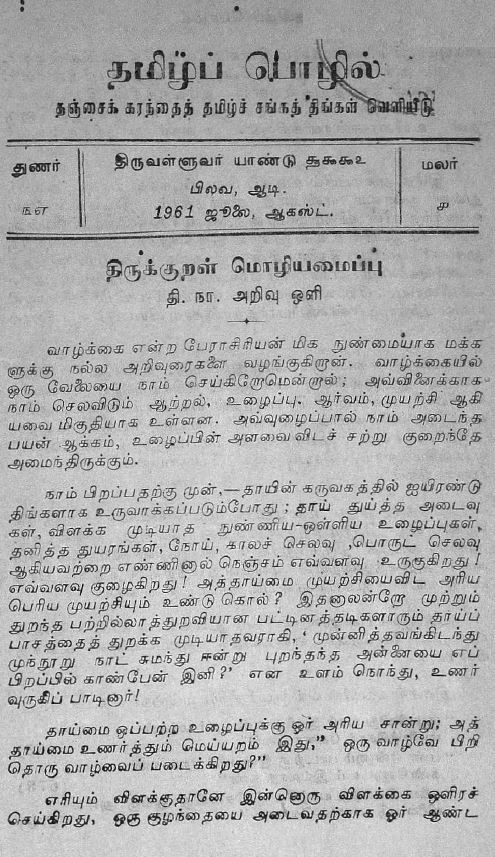 தமிழ்ப் பொழில்
தஞ்சைக் கரந்தைத் தமிழ்ச் சங்கத் திங்கள் வெளியீடு
துணர்
௩௭
திருவள்ளுவர் யாண்டு ௧௯௯௨
பிலவ, ஆடி.
1961 ஜூலை, ஆகஸ்ட்.
மலர்
௪
திருக்குறள் மொழியமைப்பு
தி. நா. அறிவு ஒளி
வாழ்க்கை என்ற பேராசிரியன் மிக நுண்மையாக மக்க
ளுக்கு நல்ல அறிவுரைகளை வழங்குகிறான். வாழ்க்கையில்
ஒரு வேலையை நாம் செய்கிறோமென்றால்; அவ்வினைக்காக
நாம் செலவிடும் ஆற்றல், உழைப்பு. ஆர்வம், முயற்சி ஆகி
யவை மிகுதியாக உள்ளன. அவ்வுழைப்பால் நாம் அடைந்த
பயன் ஆக்கம், உழைப்பின் அளவை விடச் சற்று குறைந்தே
அமைந்திருக்கும்.
நாம் பிறப்பதற்கு முன்,—தாயின் கருவகத்தில் ஐயிரண்டு
திங்களாக உருவாக்கப்படும்போது; தாய் துய்த்த அடைவு
கள், விளக்க முடியாத நுண்ணிய-ஒள்ளிய உழைப்புகள்,
தனித்த துயரங்கள், நோய், காலச் செலவு ,பொருட் செலவு
ஆகியவற்றை எண்ணினால் நெஞ்சம் எவ்வளவு உருகுகிறது!
எவ்வளவு குழைகிறது! அத்தாய்மை முயற்சியைவிட அரிய
பெரிய முயற்சியும் உண்டு கொல்? இதனாலன்றோ முற்றும்
துறந்த பற்றில்லாத்துறவியான பட்டினத்தடிகளாரும் தாய்ப்
பாசத்தைத் துறக்க முடியாதவராகி, ' முன்னித்தவங்கிடந்து
முந்நூறு நாட் சுமந்து ஈன்று புறந்தந்த அன்னையை எப்
பிறப்பில் காண்பேன் இனி?' என உளம் நொந்து, உணர்
வுருகிப் பாடினார்!
தாய்மை ஒப்பற்ற உழைப்புக்கு ஓர் அரிய சான்று; அத்
தாய்மை உணர்த்தும் மெய்யறம் இது," ஒரு வாழ்வே பிறி
தொரு வாழ்வைப் படைக்கிறது?"
எரியும் விளக்குதானே இன்னொரு விளக்கை ஒளிரச்
செய்கிறது, ஒரு குழந்தையை அடைவதற்காக ஓர் ஆண்ட